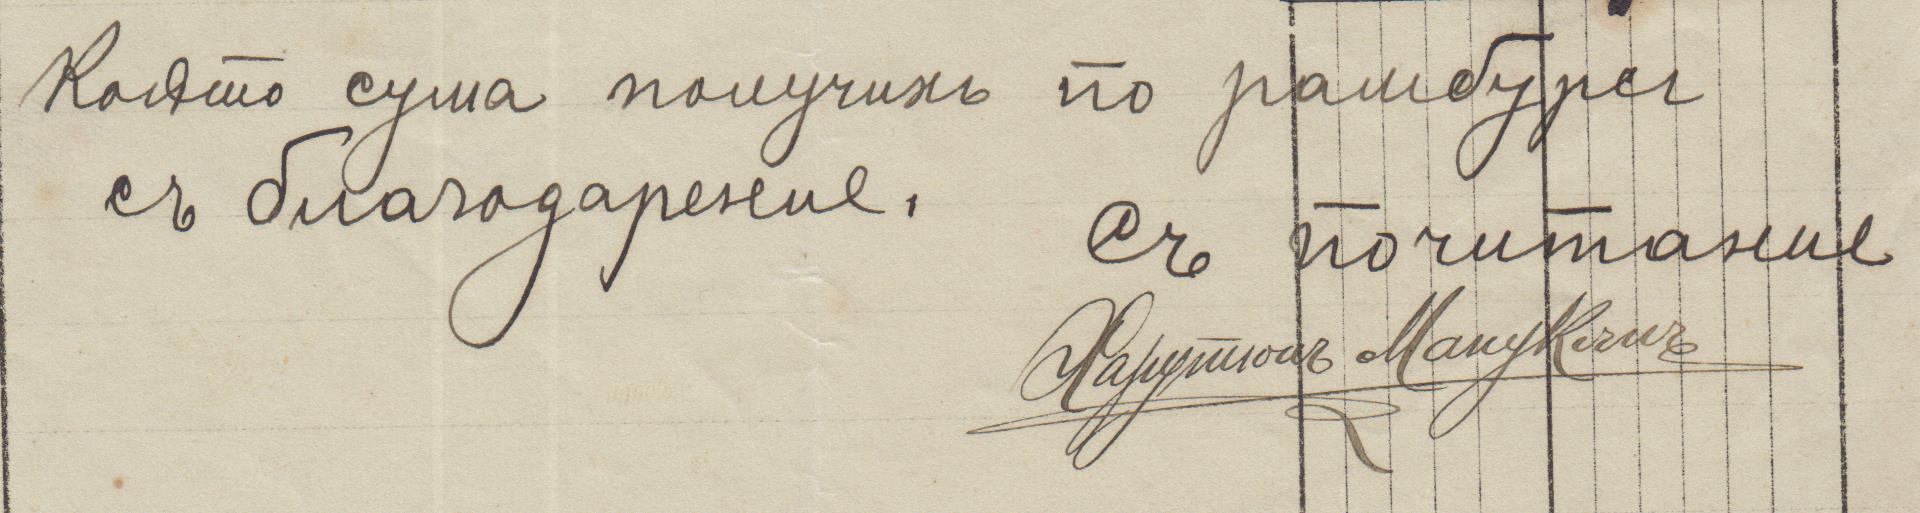 Която сума получихъ по рамбурсъ
съ благодарение.
Съ почитание
Харутюнъ Манукянъ